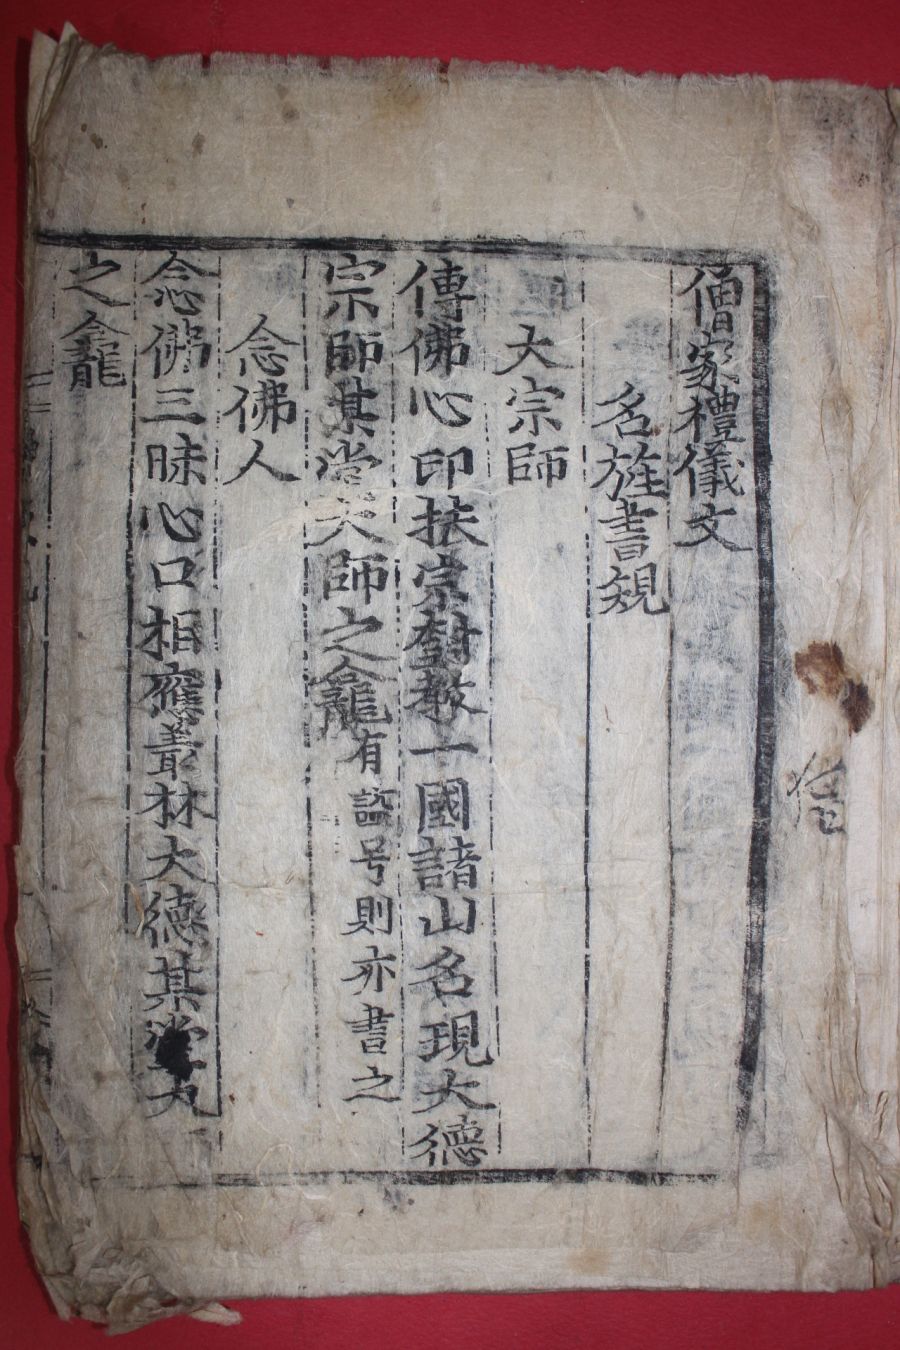 僧家禮儀文
名旌書規
大宗師
傳佛心印扶宗樹教一國諸山名現大德
宗師某堂大師之龕有諡号則亦書之
念佛人
念佛三昧心口相應叢林大德某堂大
之龕